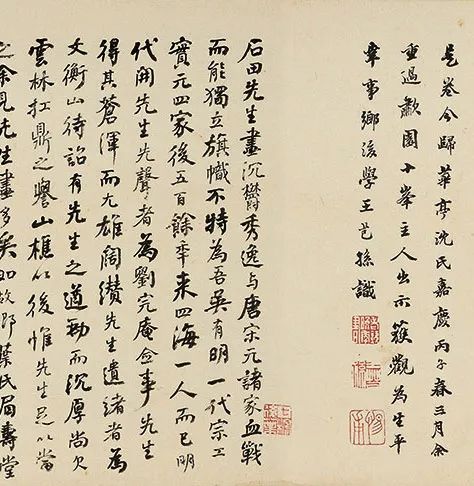 是卷今歸華亭沈氏嘉慶丙子春三月余
重過歗園十峯主人出示獲觀為生平
幸事鄉後學王芑孫識
石田先生畫沉鬱秀逸與唐宋元諸家血戰
而能獨立旗幟不特為吾吳有明一代宗工
實元四家後五百餘年来四海一人而已明
代開先生先聲者為劉完庵僉事先生
得其蒼渾而尤雄闊纘先生遺緒者為
文衡山待詔有先生之遒勁而沉厚尚欠
雲林扛鼎之譽山樵以後惟先生足以當
之余見先生畫多矣如故鄉葉氏眉壽堂